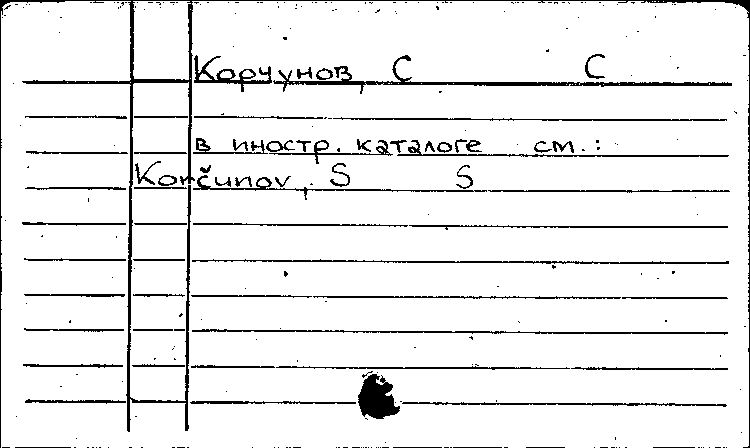 Корчунов, С С
в иностр. каталоге см.:
Korčunov, S S